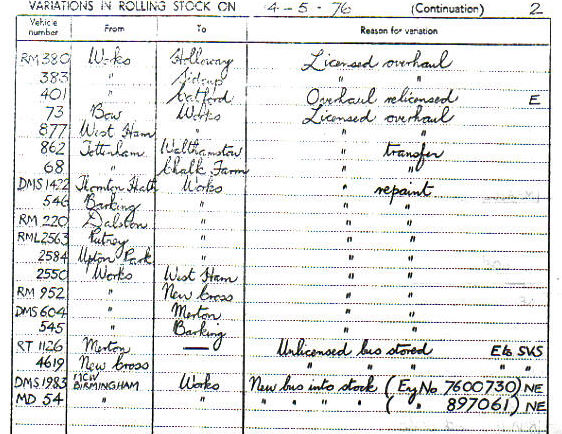 VARIATIONS IN ROLLING STOCK ON 4-5-76 (Continuation) 2
Vehicle number From To Reason for variation
RM 380 Works Holloway Licensed overhaul
383 " Sidcup " "
401 " Catford Overhaul relicensed E
73 Bow Works Licensed overhaul
877 West Ham " " "
862 Tottenham Walthamstow " transfer
68 " Chalk Farm " "
DMS 1472 Thornton Hath Works " repaint
546 Barking " " "
RM 220 Dalston " " "
RML 2563 Putney " " "
2584 Upton Park " " "
2550 Works West Ham " "
RM 952 " New Cross " "
DMS 604 " Merton " "
545 " Barking " "
RT 1126 Merton — Unlicensed bus stored Els SVS
4619 New Cross " " " " "
DMS 1983 MCW BIRMINGHAM Works New bus into stock (Eng No 7600730) NE
MD 54 " " " " " " ( " " 897061) NE